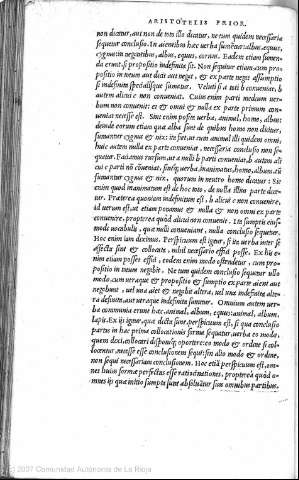 ARISTOTELIS PRIOR.
non dicatur, aut non de toto illo dicatur, ne tum quidem necessaria
sequetur conclusio. In aientibus hæc verba sumētur: albus, equus,
cygnus: in negantibus, albus, equus, coruus. Eadem etiam sumen-
da erunt, si propositio indefinita sit. Non sequitur etiam, cum pro-
positio in neum aut dicit aut negat, & ex parte negat assumptio
si indefinita specialisque sumatur. Veluti si a toti b conueniat, b
autem alicui c non conueniat. Cuius enim parti medium ver-
bum non conuenit: & omni & nulla ex parte primum con-
uenire necesse est. Sint enim posita verba, animal, homo, album:
deinde eorum etiam quæ alba sunt de quibus homo non dicitur,
sumantur cygnus & nix: ita fiet, ut cum animal illi quidem omni,
huic autem nulla ex parte conueniat, necessaria conclusio non se-
quatur. Faciamus rursum, ut a nulli b parti conueniat, b autem ali
cui c parti nō cōueniat, sintq; verba, inanimatum, homo, album: &
sumantur cygnus & nix, quorum in neutro homo dicitur: Sit
enim quod inanimatum est de hoc toto, de nulla illius parte dice-
tur. Præterea quoniam indefinitum est, b alicui c non conuenire,
id verum est, aut etiam si omni & nulla & non omni ex parte
conuenire, propterea quòd alicui non conuenit. Ita sumptis eius-
modi vocabulis, quæ nulli conueniant, nulla conclusio sequetur.
Hoc enim iam diximus. Perspicuum est igitur, si ita verba inter se
affecta sint & collocata, nihil necessariò effici posse. Ex his e-
nim etiam posset effici, eodem enim modo ostendetur, cum pro-
positio in vniuersum negabit. Ne tum quidem conclusio sequetur vllo
modo, cum vtraque & propositio & sumptio ex parte aient aut
negabunt, vel vna aiet & negabit altera, vel vna indefinita alte-
ra definita, aut vtraque indefinita sumetur. Omnium autem ver-
ba communia erunt hæc, animal, album, equus: animal, album,
lapis. Ex iis igitur, quæ dicta sunt, perspicuum est, si qua conclusio
partis in hac prima collocationis forma sequatur, verba eo modo,
quem dixi, collocari disponíq; oportere: eo modo & ordine si col-
locentur, necesse esse conclusionem sequi: sin alio modo & ordine,
non sequi necessariam conclusionem. Hoc etiã perspicuum est, om-
nes huius formæ perfectas esse ratiocinationes, propterea quòd o-
mnes iis quæ initio sumpta sunt absoluātur suis omnibus partibus.
(c) 2007 Comunidad Autónoma de La Rioja